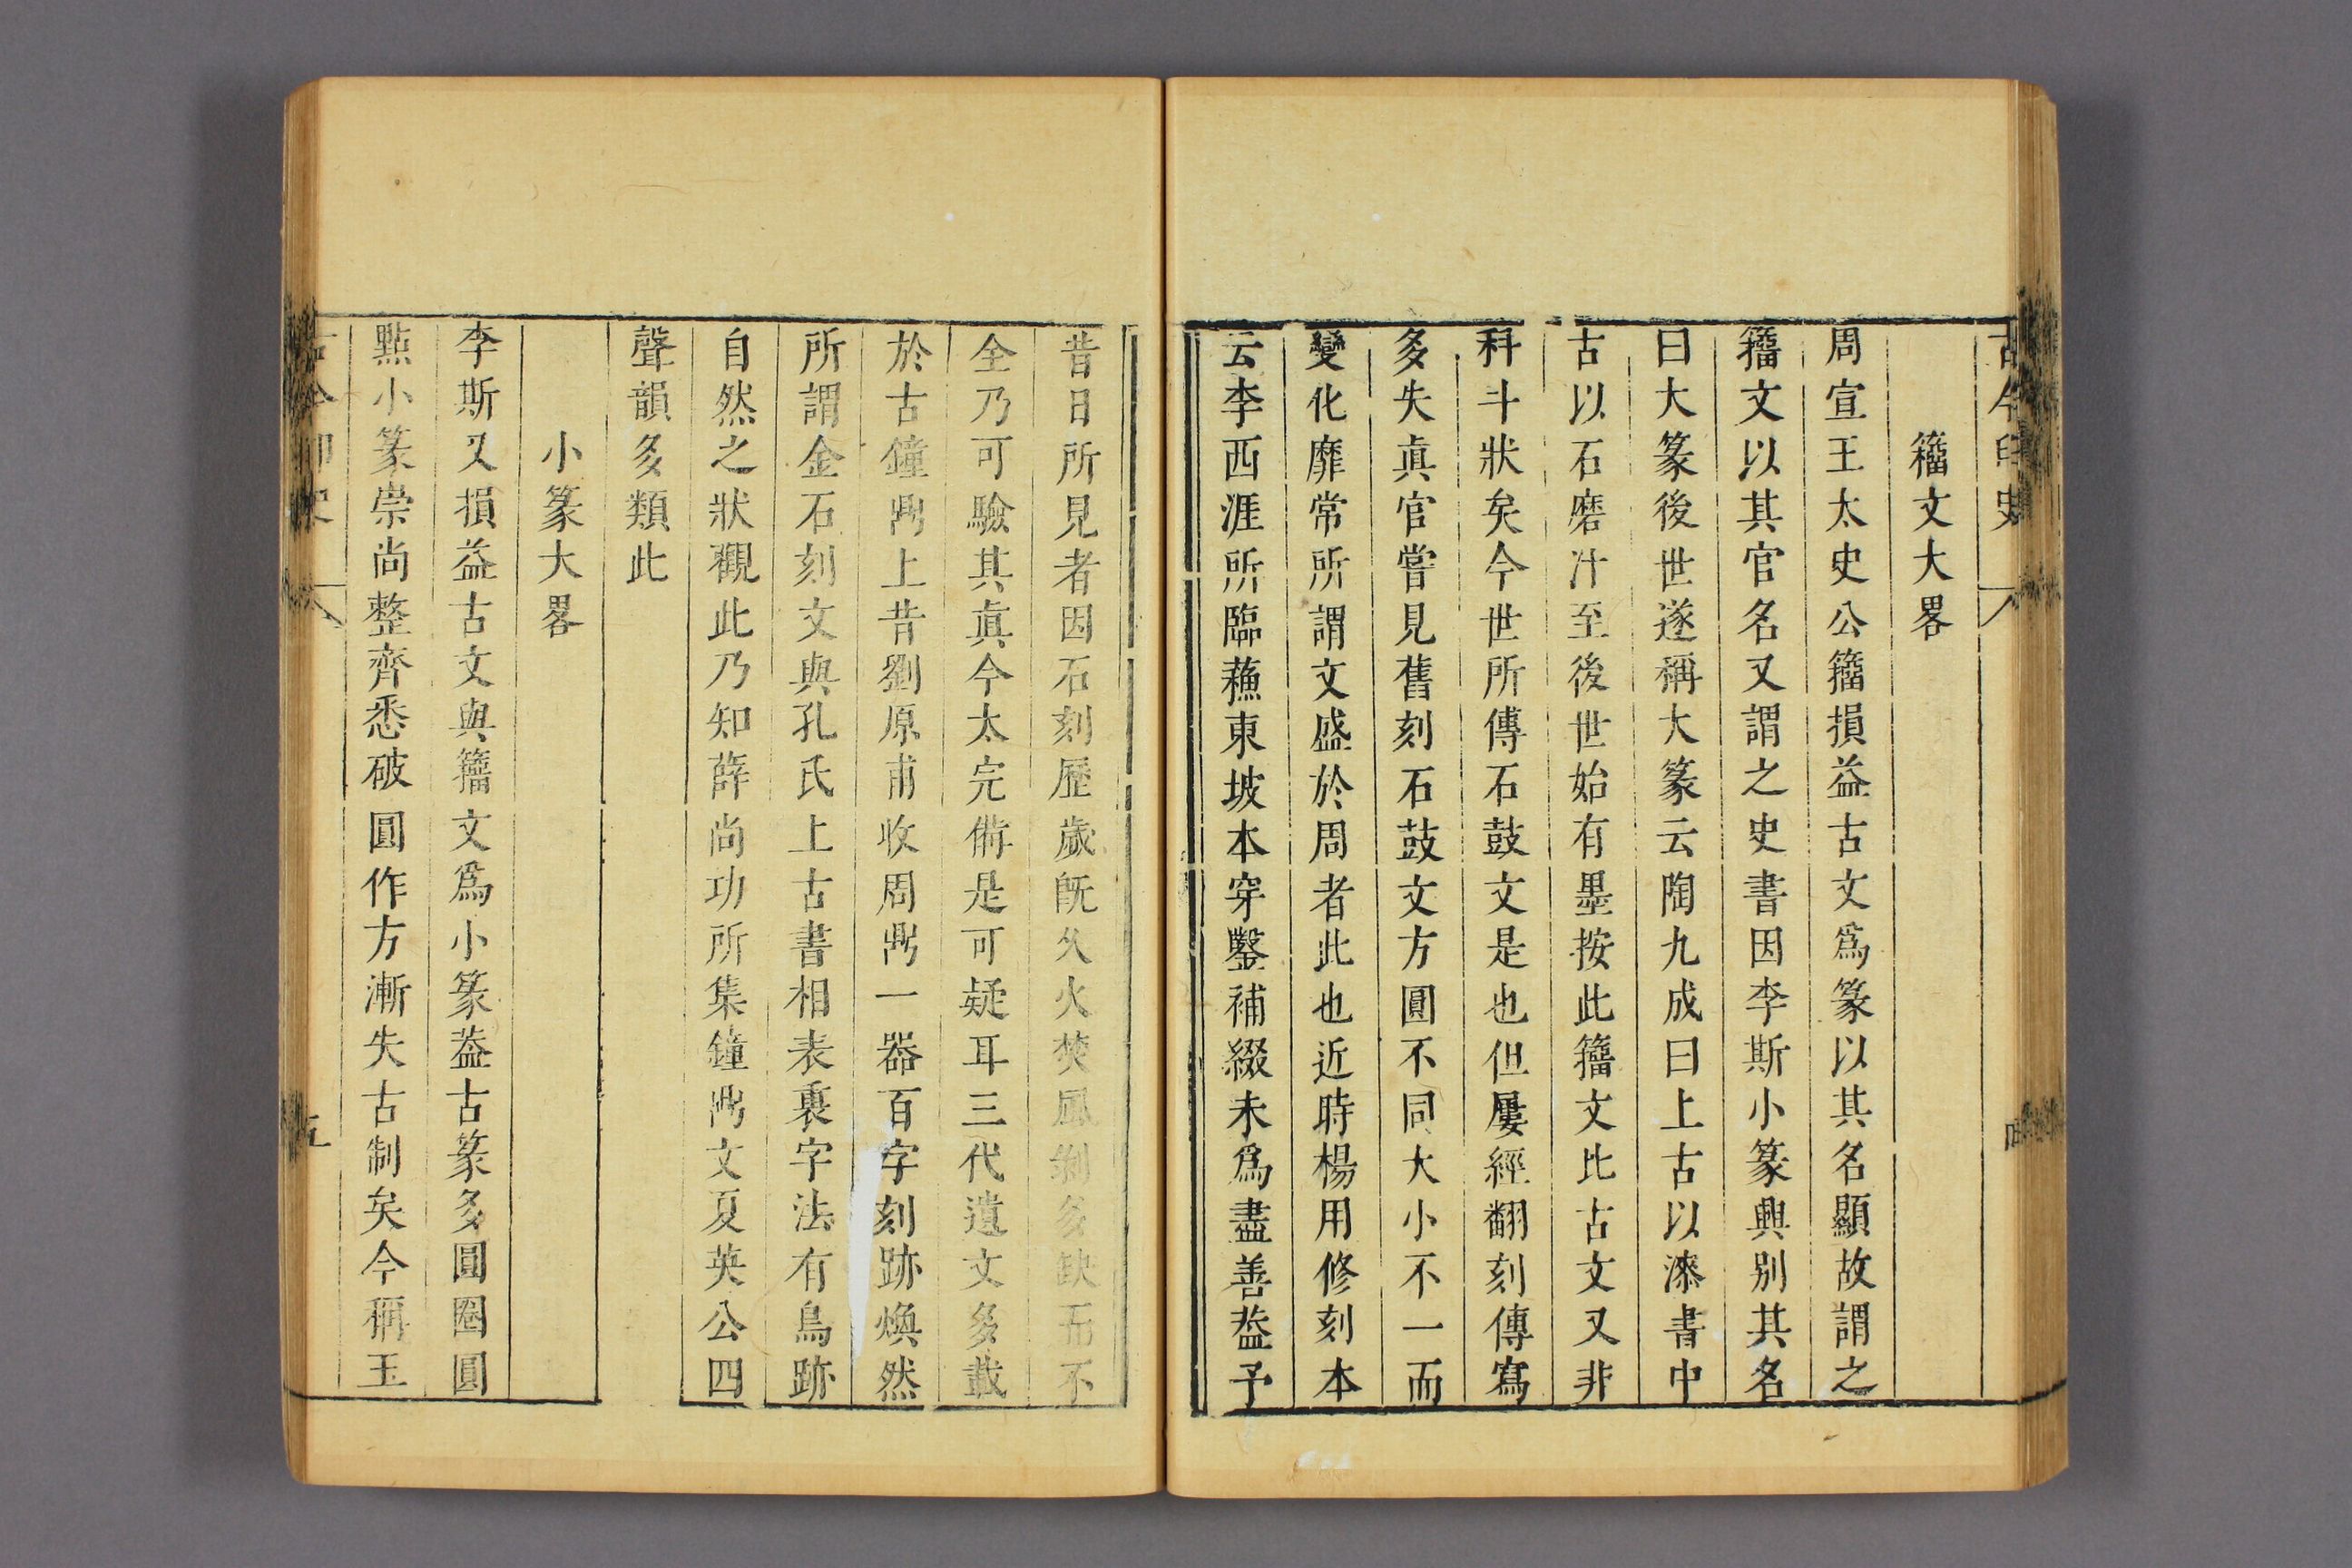 古今印史
籀文大畧
周宣王太史公籀損益古文爲篆以其名顯故謂之
籀文以其官名又謂之史書因李斯小篆興別其名
曰大篆後世遂稱大篆云陶九成曰上古以漆書中
古以石磨汁至後世始有墨按此籀文比古文又非
科斗狀矣今世所傳石鼓文是也但屢經翻刻傳寫
多失眞官嘗見舊刻石鼓文方圓不同大小不一而
變化靡常所謂文盛於周者此也近時楊用修刻本
云李西涯所臨蘓東坡本穿鑿補綴未爲盡善葢予
昔日所見者因石刻歷歲旣久火焚風剝多缺而不
全乃可驗其眞今太完備是可疑耳三代遺文多載
於古鐘鼎上昔劉原甫收周鼎一器百字刻跡煥然
所謂金石刻文與孔氏上古書相表裏字法有鳥跡
自然之狀觀此乃知薛尚功所集鐘鼎文夏英公四
聲韻多類此
小篆大畧
李斯又損益古文與籀文爲小篆葢古篆多圓圈圓
點小篆崇尚整齊悉破圓作方漸失古制矣今稱玉
古今印史
五